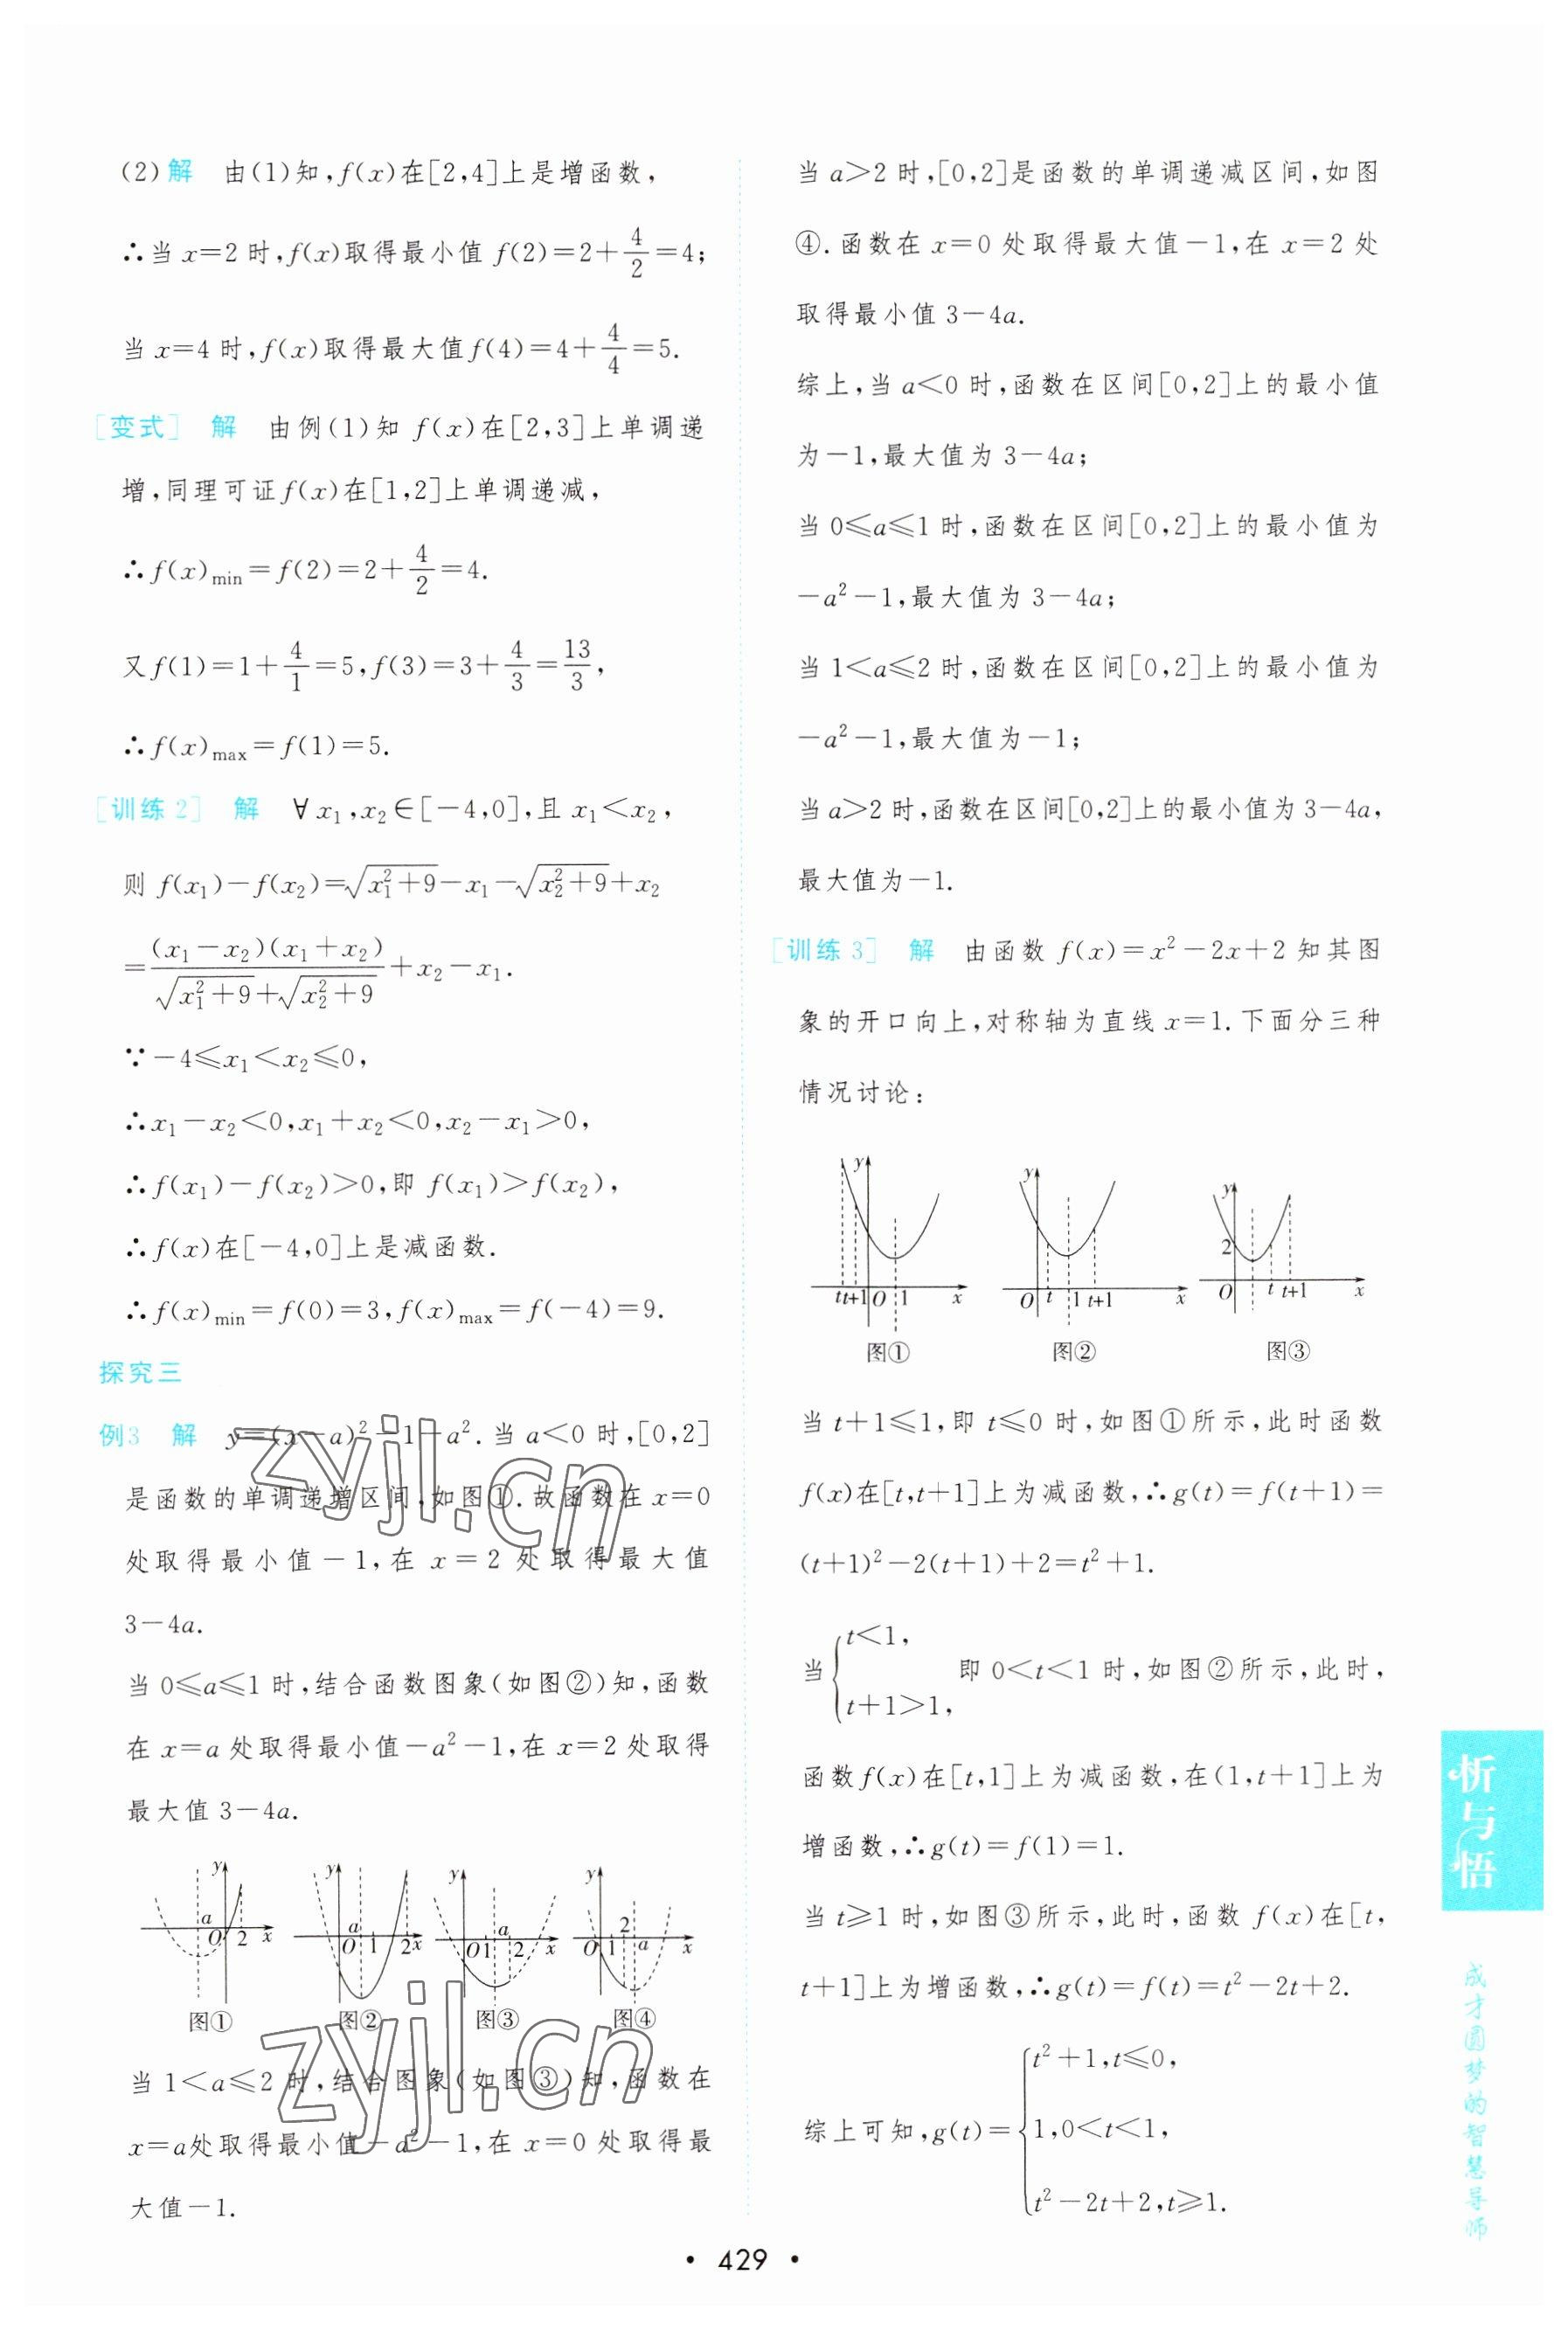 (2)解 由(1)知,f(x)在[2,4]上是增函数,
∴当 x=2 时,f(x)取得最小值 f(2)=2+4/2=4;
当 x=4 时,f(x)取得最大值f(4)=4+4/4=5.
[变式] 解 由例(1)知 f(x)在[2,3]上单调递
增,同理可证f(x)在[1,2]上单调递减,
∴f(x)min=f(2)=2+4/2=4.
又f(1)=1+4/1=5,f(3)=3+4/3=13/3,
∴f(x)max=f(1)=5.
[训练2] 解 ∀x₁,x₂∈[-4,0],且 x₁<x₂,
则 f(x₁)-f(x₂)=√(x₁²+9)-x₁-√(x₂²+9)+x₂
=(x₁-x₂)(x₁+x₂)/(√(x₁²+9)+√(x₂²+9))+x₂-x₁.
∵-4≤x₁<x₂≤0,
∴x₁-x₂<0,x₁+x₂<0,x₂-x₁>0,
∴f(x₁)-f(x₂)>0,即 f(x₁)>f(x₂),
∴f(x)在[-4,0]上是减函数.
∴f(x)min=f(0)=3,f(x)max=f(-4)=9.
探究三
例3 解 y=(x-a)²-1-a².当 a<0 时,[0,2]
是函数的单调递增区间,如图①.故函数在 x=0
处取得最小值-1,在 x=2 处取得最大值
3-4a.
当 0≤a≤1 时,结合函数图象(如图②)知,函数
在 x=a 处取得最小值-a²-1,在 x=2 处取得
最大值 3-4a.
y a O 2 x
y a O 1 2 x
y a O 1 2 x
y 2 O 1 a x
图① 图② 图③ 图④
当 1<a≤2 时,结合图象(如图③)知,函数在
x=a处取得最小值-a²-1,在 x=0 处取得最
大值-1.
当 a>2 时,[0,2]是函数的单调递减区间,如图
④.函数在 x=0 处取得最大值-1,在 x=2 处
取得最小值 3-4a.
综上,当 a<0 时,函数在区间[0,2]上的最小值
为-1,最大值为 3-4a;
当 0≤a≤1 时,函数在区间[0,2]上的最小值为
-a²-1,最大值为 3-4a;
当 1<a≤2 时,函数在区间[0,2]上的最小值为
-a²-1,最大值为-1;
当 a>2 时,函数在区间[0,2]上的最小值为 3-4a,
最大值为-1.
[训练3] 解 由函数 f(x)=x²-2x+2 知其图
象的开口向上,对称轴为直线 x=1.下面分三种
情况讨论:
y t t+1 O 1 x
y O t 1 t+1 x
y 2 O t t+1 x
图① 图② 图③
当 t+1≤1,即 t≤0 时,如图①所示,此时函数
f(x)在[t,t+1]上为减函数,∴g(t)=f(t+1)=
(t+1)²-2(t+1)+2=t²+1.
当{t<1, t+1>1, 即 0<t<1 时,如图②所示,此时,
函数f(x)在[t,1]上为减函数,在(1,t+1]上为
增函数,∴g(t)=f(1)=1.
当 t≥1 时,如图③所示,此时,函数 f(x)在[t,
t+1]上为增函数,∴g(t)=f(t)=t²-2t+2.
综上可知,g(t)={t²+1,t≤0, 1,0<t<1, t²-2t+2,t≥1.
析与悟
成才圆梦的智慧导师
• 429 •
zyjl.cn
zyjl.cn